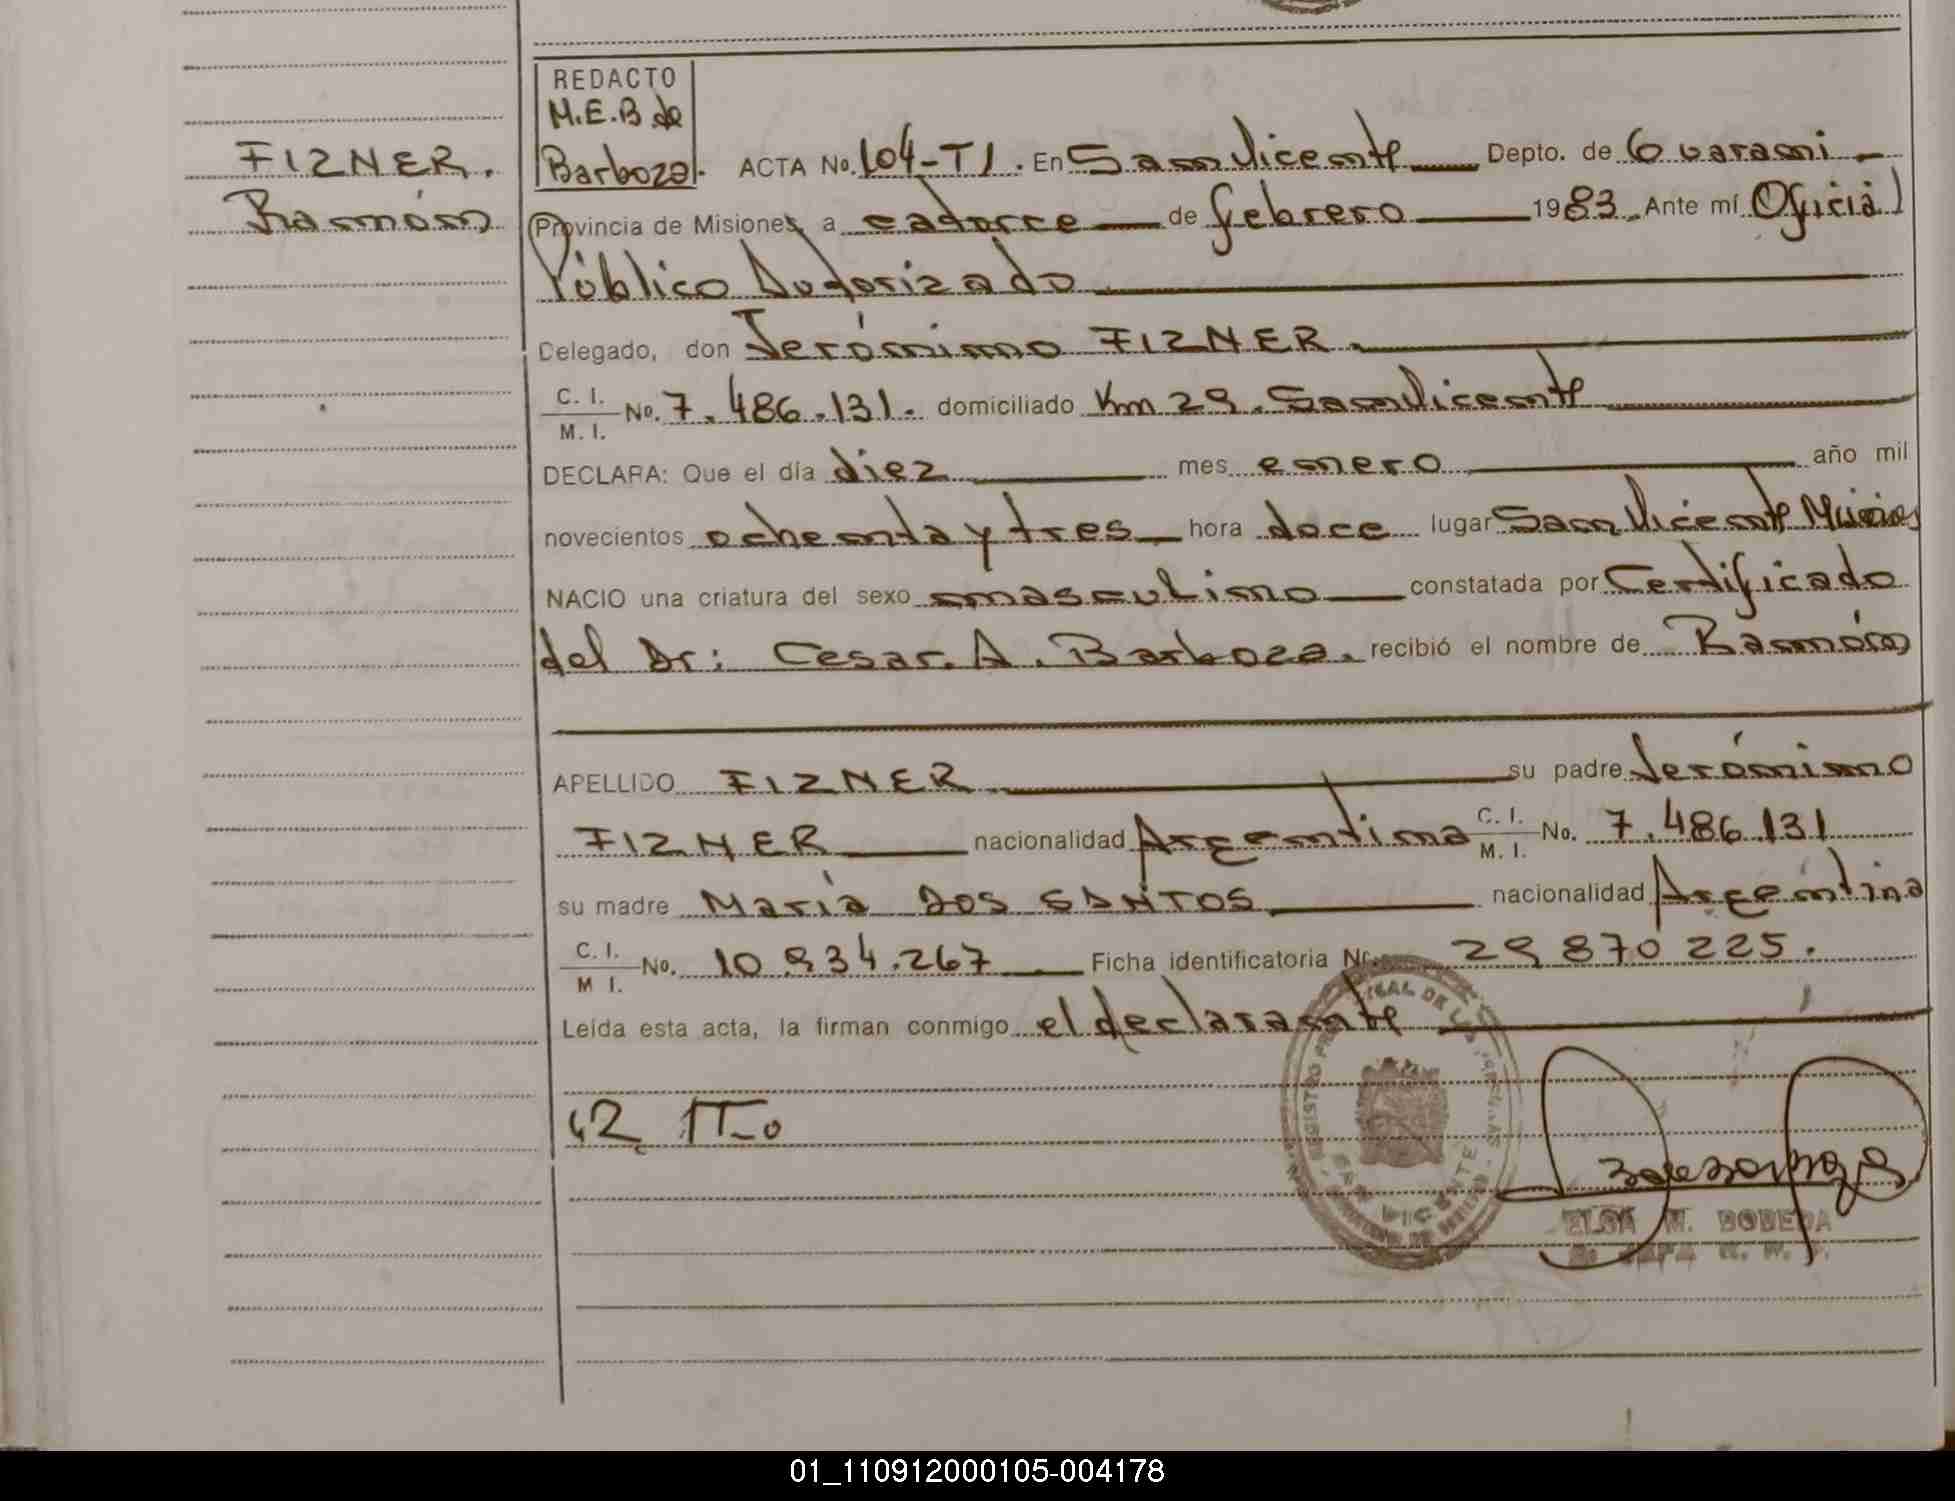 REDACTO
M.E.B de
FIZNER. Barboza. ACTA No. 104-T1. En San Vicente Depto. de Guarani
Ramón Provincia de Misiones, a catorce de febrero 1983. Ante mí Oficial
Público Autorizado
Delegado, don Jerónimo FIZNER.
C. I. / M. I. No. 7.486.131. domiciliado Km 29. San Vicente
DECLARA: Que el día diez mes enero año mil
novecientos ochenta y tres hora doce lugar San Vicente Misiones
NACIO una criatura del sexo masculino constatada por Certificado
del Dr: Cesar. A. Barboza. recibió el nombre de Ramón
APELLIDO FIZNER su padre Jerónimo
FIZNER nacionalidad Argentina C. I. / M. I. No. 7.486.131
su madre María DOS SANTOS nacionalidad Argentina
C. I. / M I. No. 10.934.267 Ficha identificatoria Nr. 29 870 225.
Leída esta acta, la firman conmigo el declarante
SAN VICENTE
ELSA M. BOBEDA
01_110912000105-004178